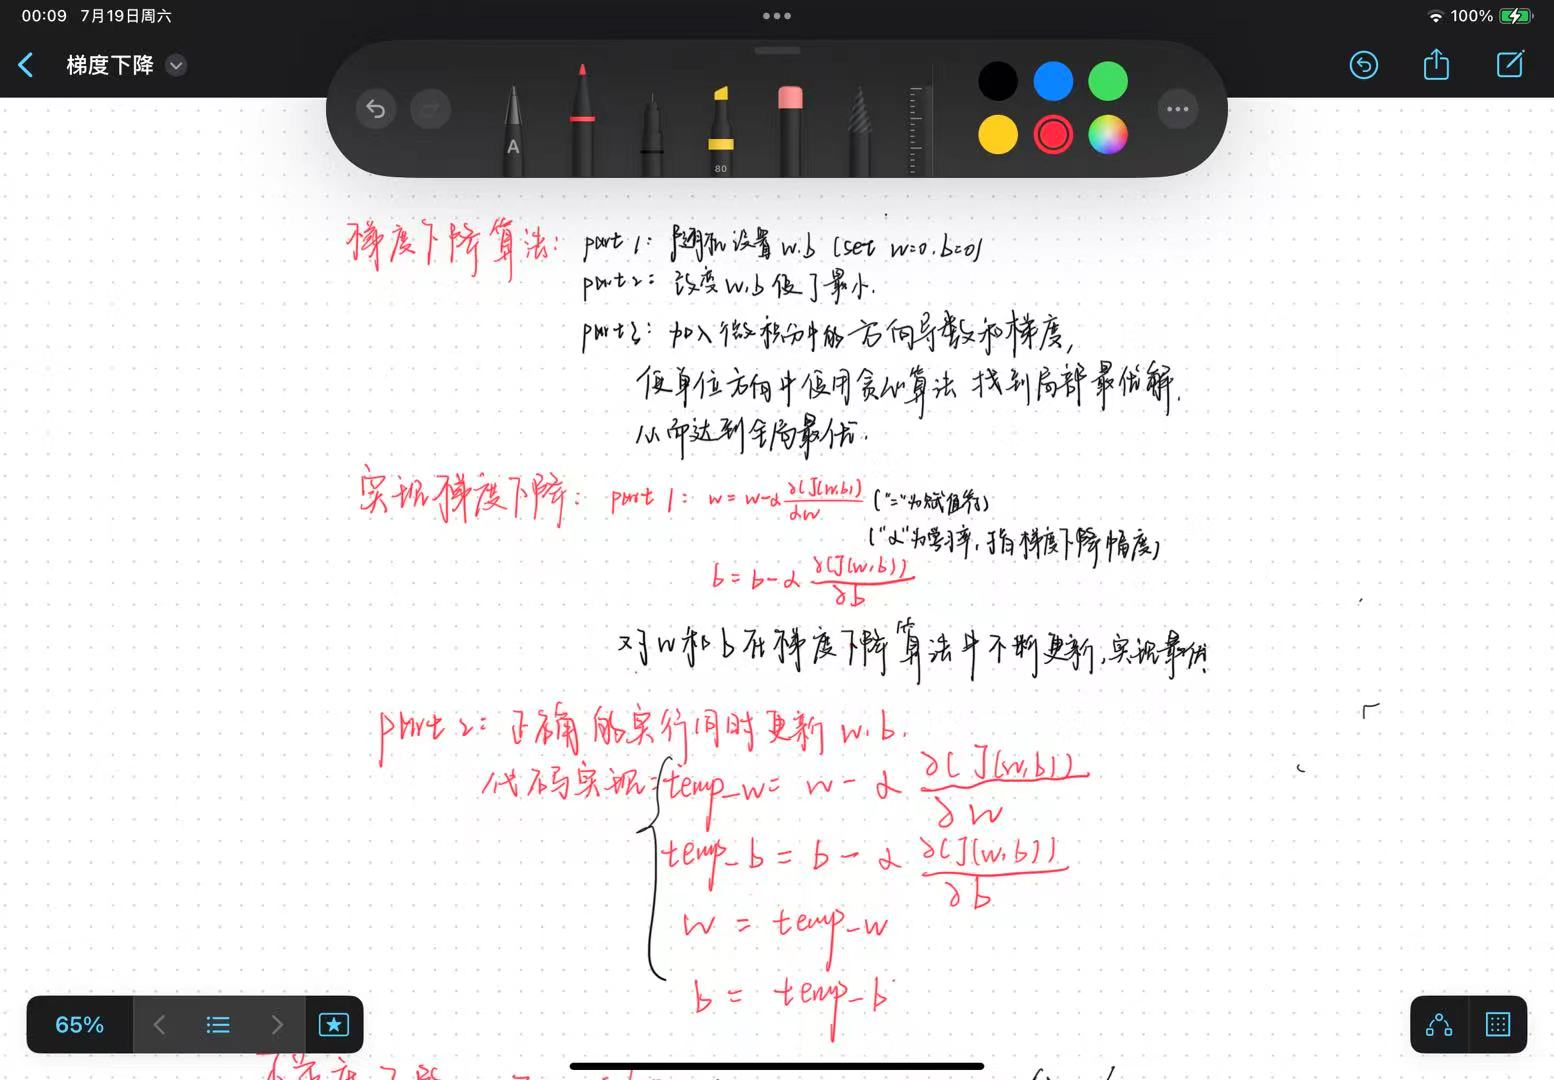 00:09 7月19日周六
100%
梯度下降
A
80
梯度下降算法: part 1: 随机设置 w.b (set w=0.b=0)
part 2: 改变 w.b 使 J 最小.
part 3: 加入微积分中的方向导数和梯度,
使单位方向中使用贪心算法 找到局部最优解.
从而达到全局最优.
实现梯度下降: part 1: w = w-α ∂(J(w,b))/∂w ("="为赋值符)
("α"为学习率,指梯度下降幅度)
b = b-α ∂(J(w,b))/∂b
对 w 和 b 在梯度下降算法中不断更新,实现最优
part 2: 正确的实行同时更新 w.b.
代码实现: temp_w = w - α ∂(J(w,b))/∂w
temp_b = b - α ∂(J(w,b))/∂b
w = temp_w
b = temp_b
65%